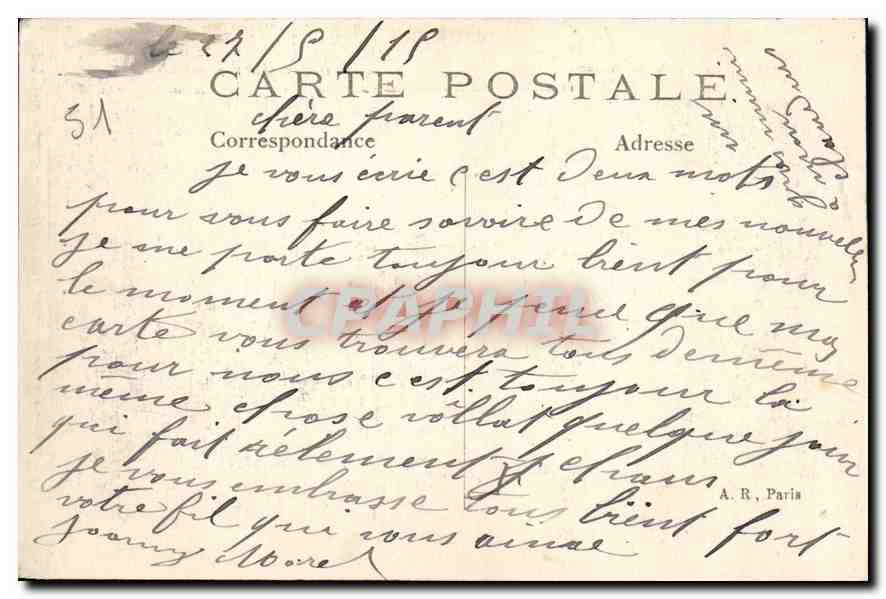 le 27/5/15
CARTE POSTALE
51
chère parent
Correspondance
Adresse
je vous écrie c est deux mots
pour vous faire savoire de mes nouvelles
je me porte toujour bient pour
le moment et je pense que ma
carte vous trouvera tous de même
pour nous c est toujour la
même chose vollat quelque jour
qui fait réelement chaus
je vous embrasse tous bient fort
A. R., Paris
votre fil qui vous aime
Morel
CPAPHIL